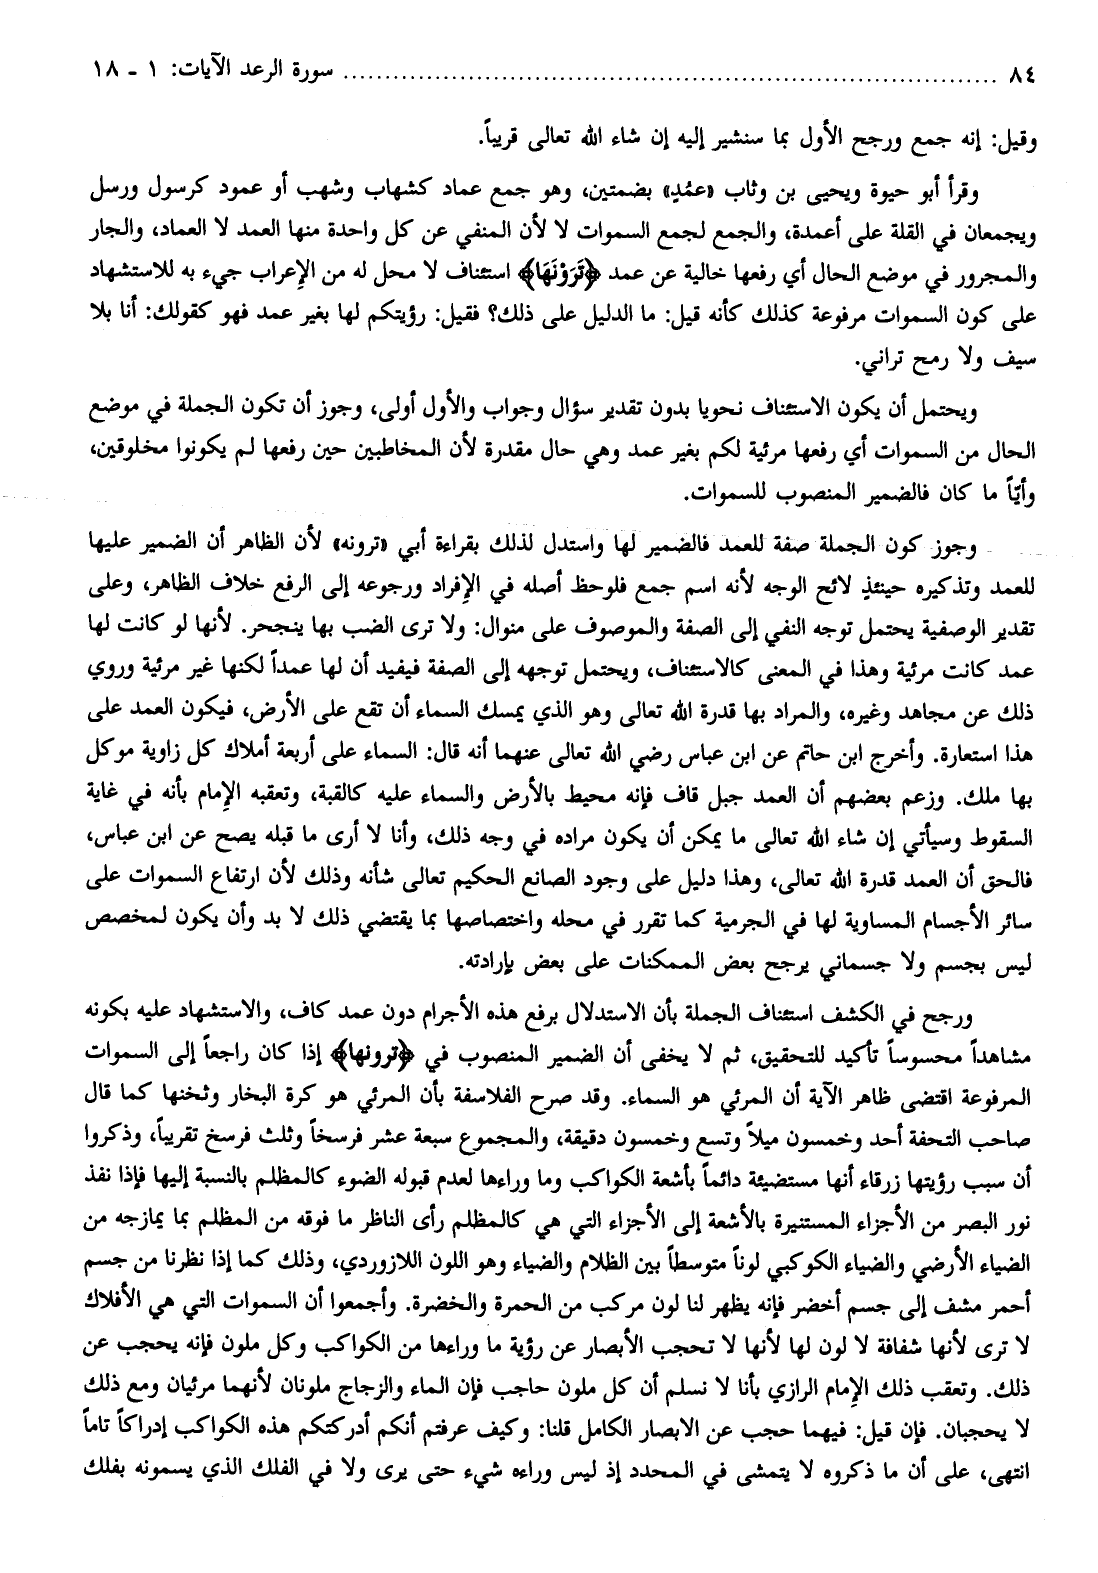 ٨٤ ........................................................................ سورة الرعد الآيات: ١ - ١٨
وقيل: إنه جمع ورجح الأول بما سنشير إليه إن شاء الله تعالى قريباً.
وقرأ أبو حيوة ويحيى بن وثاب «عمُدٍ» بضمتين، وهو جمع عماد كشهاب وشهب أو عمود كرسول ورسل
ويجمعان في القلة على أعمدة، والجمع لجمع السموات لا لأن المنفي عن كل واحدة منها العمد لا العماد، والجار
والمجرور في موضع الحال أي رفعها خالية عن عمد ﴿تَرَوْنَهَا﴾ استئناف لا محل له من الإعراب جيء به للاستشهاد
على كون السموات مرفوعة كذلك كأنه قيل: ما الدليل على ذلك؟ فقيل: رؤيتكم لها بغير عمد فهو كقولك: أنا بلا
سيف ولا رمح تراني.
ويحتمل أن يكون الاستئناف نحويا بدون تقدير سؤال وجواب والأول أولى، وجوز أن تكون الجملة في موضع
الحال من السموات أي رفعها مرئية لكم بغير عمد وهي حال مقدرة لأن المخاطبين حين رفعها لم يكونوا مخلوقين،
وأيّاً ما كان فالضمير المنصوب للسموات.
وجوز كون الجملة صفة للعمد فالضمير لها واستدل لذلك بقراءة أبي «ترونه» لأن الظاهر أن الضمير عليها
للعمد وتذكيره حينئذٍ لائح الوجه لأنه اسم جمع فلوحظ أصله في الإفراد ورجوعه إلى الرفع خلاف الظاهر، وعلى
تقدير الوصفية يحتمل توجه النفي إلى الصفة والموصوف على منوال: ولا ترى الضب بها ينجحر. لأنها لو كانت لها
عمد كانت مرئية وهذا في المعنى كالاستئناف، ويحتمل توجهه إلى الصفة فيفيد أن لها عمداً لكنها غير مرئية وروي
ذلك عن مجاهد وغيره، والمراد بها قدرة الله تعالى وهو الذي يمسك السماء أن تقع على الأرض، فيكون العمد على
هذا استعارة. وأخرج ابن حاتم عن ابن عباس رضي الله تعالى عنهما أنه قال: السماء على أربعة أملاك كل زاوية موكل
بها ملك. وزعم بعضهم أن العمد جبل قاف فإنه محيط بالأرض والسماء عليه كالقبة، وتعقبه الإمام بأنه في غاية
السقوط وسيأتي إن شاء الله تعالى ما يمكن أن يكون مراده في وجه ذلك، وأنا لا أرى ما قبله يصح عن ابن عباس،
فالحق أن العمد قدرة الله تعالى، وهذا دليل على وجود الصانع الحكيم تعالى شأنه وذلك لأن ارتفاع السموات على
سائر الأجسام المساوية لها في الجرمية كما تقرر في محله واختصاصها بما يقتضي ذلك لا بد وأن يكون لمخصص
ليس بجسم ولا جسماني يرجح بعض الممكنات على بعض بإرادته.
ورجح في الكشف استئناف الجملة بأن الاستدلال برفع هذه الأجرام دون عمد كاف، والاستشهاد عليه بكونه
مشاهداً محسوساً تأكيد للتحقيق، ثم لا يخفى أن الضمير المنصوب في ﴿ترونها﴾ إذا كان راجعاً إلى السموات
المرفوعة اقتضى ظاهر الآية أن المرئي هو السماء. وقد صرح الفلاسفة بأن المرئي هو كرة البخار وثخنها كما قال
صاحب التحفة أحد وخمسون ميلاً وتسع وخمسون دقيقة، والمجموع سبعة عشر فرسخاً وثلث فرسخ تقريباً، وذكروا
أن سبب رؤيتها زرقاء أنها مستضيئة دائماً بأشعة الكواكب وما وراءها لعدم قبوله الضوء كالمظلم بالنسبة إليها فإذا نفذ
نور البصر من الأجزاء المستنيرة بالأشعة إلى الأجزاء التي هي كالمظلم رأى الناظر ما فوقه من المظلم بما يمازجه من
الضياء الأرضي والضياء الكوكبي لوناً متوسطاً بين الظلام والضياء وهو اللون اللازوردي، وذلك كما إذا نظرنا من جسم
أحمر مشف إلى جسم أخضر فإنه يظهر لنا لون مركب من الحمرة والخضرة. وأجمعوا أن السموات التي هي الأفلاك
لا ترى لأنها شفافة لا لون لها لأنها لا تحجب الأبصار عن رؤية ما وراءها من الكواكب وكل ملون فإنه يحجب عن
ذلك. وتعقب ذلك الإمام الرازي بأنا لا نسلم أن كل ملون حاجب فإن الماء والزجاج ملونان لأنهما مرئيان ومع ذلك
لا يحجبان. فإن قيل: فيهما حجب عن الابصار الكامل قلنا: وكيف عرفتم أنكم أدركتكم هذه الكواكب إدراكاً تاماً
انتهى، على أن ما ذكروه لا يتمشى في المحدد إذ ليس وراءه شيء حتى يرى ولا في الفلك الذي يسمونه بفلك